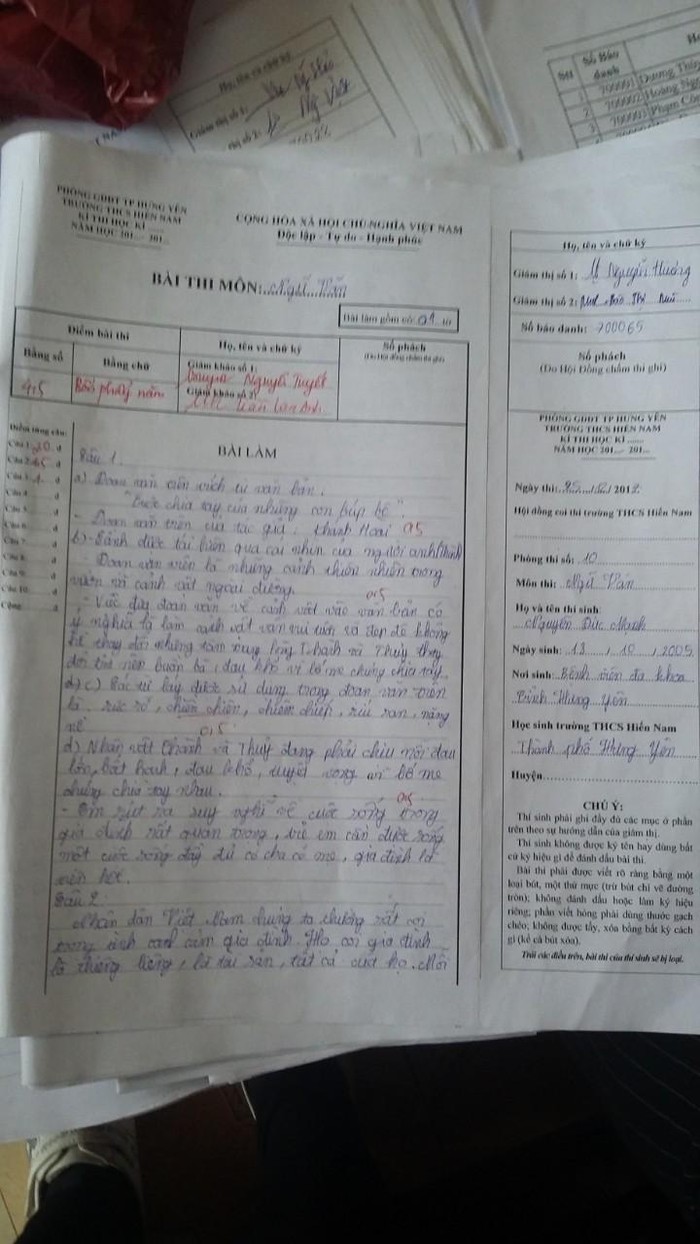 Họ, tên và chữ ký
Giám thị số 1:
Giám thị số 2:
Stt
Số Báo danh
1 700001 Dương Thùy
2 700002 Hoàng Ng
3 700003 Phạm Côn
PHÒNG GDĐT TP HƯNG YÊN
TRƯỜNG THCS HIẾN NAM
KÌ THI HỌC KÌ ......
NĂM HỌC 201... - 201...
CỘNG HÒA XÃ HỘI CHỦ NGHĨA VIỆT NAM
Độc lập - Tự do - Hạnh phúc
BÀI THI MÔN: Ngữ Văn
Bài làm gồm có: 01 tờ
Điểm bài thi
Bằng số
Bằng chữ
Họ, tên và chữ ký
Giám khảo số 1:
Nguyễn Tuyết
Giám khảo số 2:
Trần Lan Anh
Số phách
(Do Hội đồng chấm thi ghi)
4,5
Bốn phẩy năm
Điểm từng câu:
Câu 1: 2,0 đ
BÀI LÀM
Câu 1
a) Đoạn văn trên trích từ văn bản.
"Cuộc chia tay của những con búp bê".
- Đoạn văn trên của tác giả: Khánh Hoài 0,5
b) - Cảnh được tái hiện qua cái nhìn của người anh (thành
Đoạn văn trên là những cảnh thiên nhiên trong
vườn và cảnh vật ngoài đường.
0,5
- Việc đưa đoạn văn về cảnh vật vào văn bản có
ý nghĩa là làm cảnh vật vẫn vui tươi và đẹp đẽ không
hề thay đổi nhưng tâm trạng lòng Thành và Thủy thay
đổi trở nên buồn bã, đau khổ vì bố mẹ chúng chia tay.
c) Các từ láy được sử dụng trong đoạn văn trên
là: rực rỡ, chiền chiện, chiêm chiếp, ríu ran, nặng
nề
0,5
d) Nhân vật Thành và Thủy đang phải chịu nỗi đau
lớn, bất hạnh, đau khổ, tuyệt vọng vì bố mẹ
chúng chia tay nhau.
0,5
- Em rút ra suy nghĩ về cuộc sống trong
gia đình rất quan trọng, trẻ em cần được sống
một cuộc sống đầy đủ có cha có mẹ, gia đình là
Câu 2
Nhân dân Việt Nam chúng ta thường rất coi
trọng tình cảm gia đình. Họ coi gia đình
là thiêng liêng, là tài sản, tất cả của họ. Mỗi
Họ, tên và chữ ký
Giám thị số 1: Nguyễn Hương
Giám thị số 2:
Số báo danh: 700065
Số phách
(Do Hội Đồng chấm thi ghi)
PHÒNG GDĐT TP HƯNG YÊN
TRƯỜNG THCS HIẾN NAM
KÌ THI HỌC KÌ ......
NĂM HỌC 201... - 201...
Ngày thi: 25 / 12 / 2017
Hội đồng coi thi trường THCS Hiến Nam
Phòng thi số: 10
Môn thi: Ngữ Văn
Họ và tên thí sinh:
Nguyễn Đức Mạnh
Ngày sinh: 13 / 10 / 2005
Nơi sinh: Bệnh viện đa khoa
tỉnh Hưng Yên
Học sinh trường THCS Hiến Nam
Thành phố Hưng Yên
Huyện
CHÚ Ý:
Thí sinh phải ghi đầy đủ các mục ở phần
trên theo sự hướng dẫn của giám thị.
Thí sinh không được ký tên hay dùng bất
cứ ký hiệu gì để đánh dấu bài thi.
Bài thi phải được viết rõ ràng bằng một
loại bút, một thứ mực (trừ bút chì vẽ đường
tròn); không đánh dấu hoặc làm ký hiệu
riêng; phần viết hỏng phải dùng thước gạch
chéo; không được tẩy, xóa bằng bất kỳ cách
gì (kể cả bút xóa).
Trái các điều trên, bài thi của thí sinh sẽ bị loại.